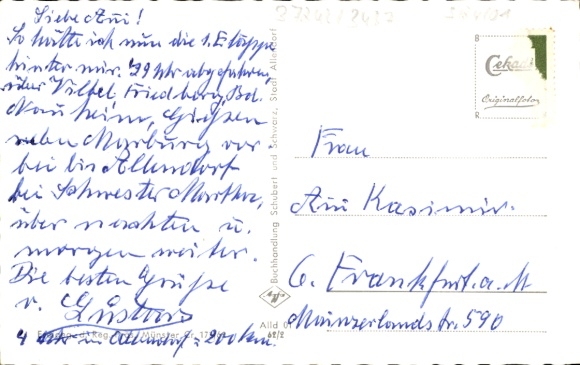 Liebe Azu!
So hätte ich nun die 1. Etappe
hinter mir. 1/2 9 Uhr abgefahren
über Vilbel Friedberg, Bd.
Nauheim, Gießen
neben Marburg vor-
bei bis Allendorf
bei Schwester Martha,
über nachten u.
morgen weiter.
Die besten Grüße
v. Gustav
4 Uhr in Allendorf = 200 km.
Buchhandlung Schubert und Schwarz, Stadt Allendorf
Alld 01
62/2
B
Cekade
Originalfoto
R
Frau
Azu Kasimir.
6. Frankfurt. a. M
Mainzerlandstr. 590